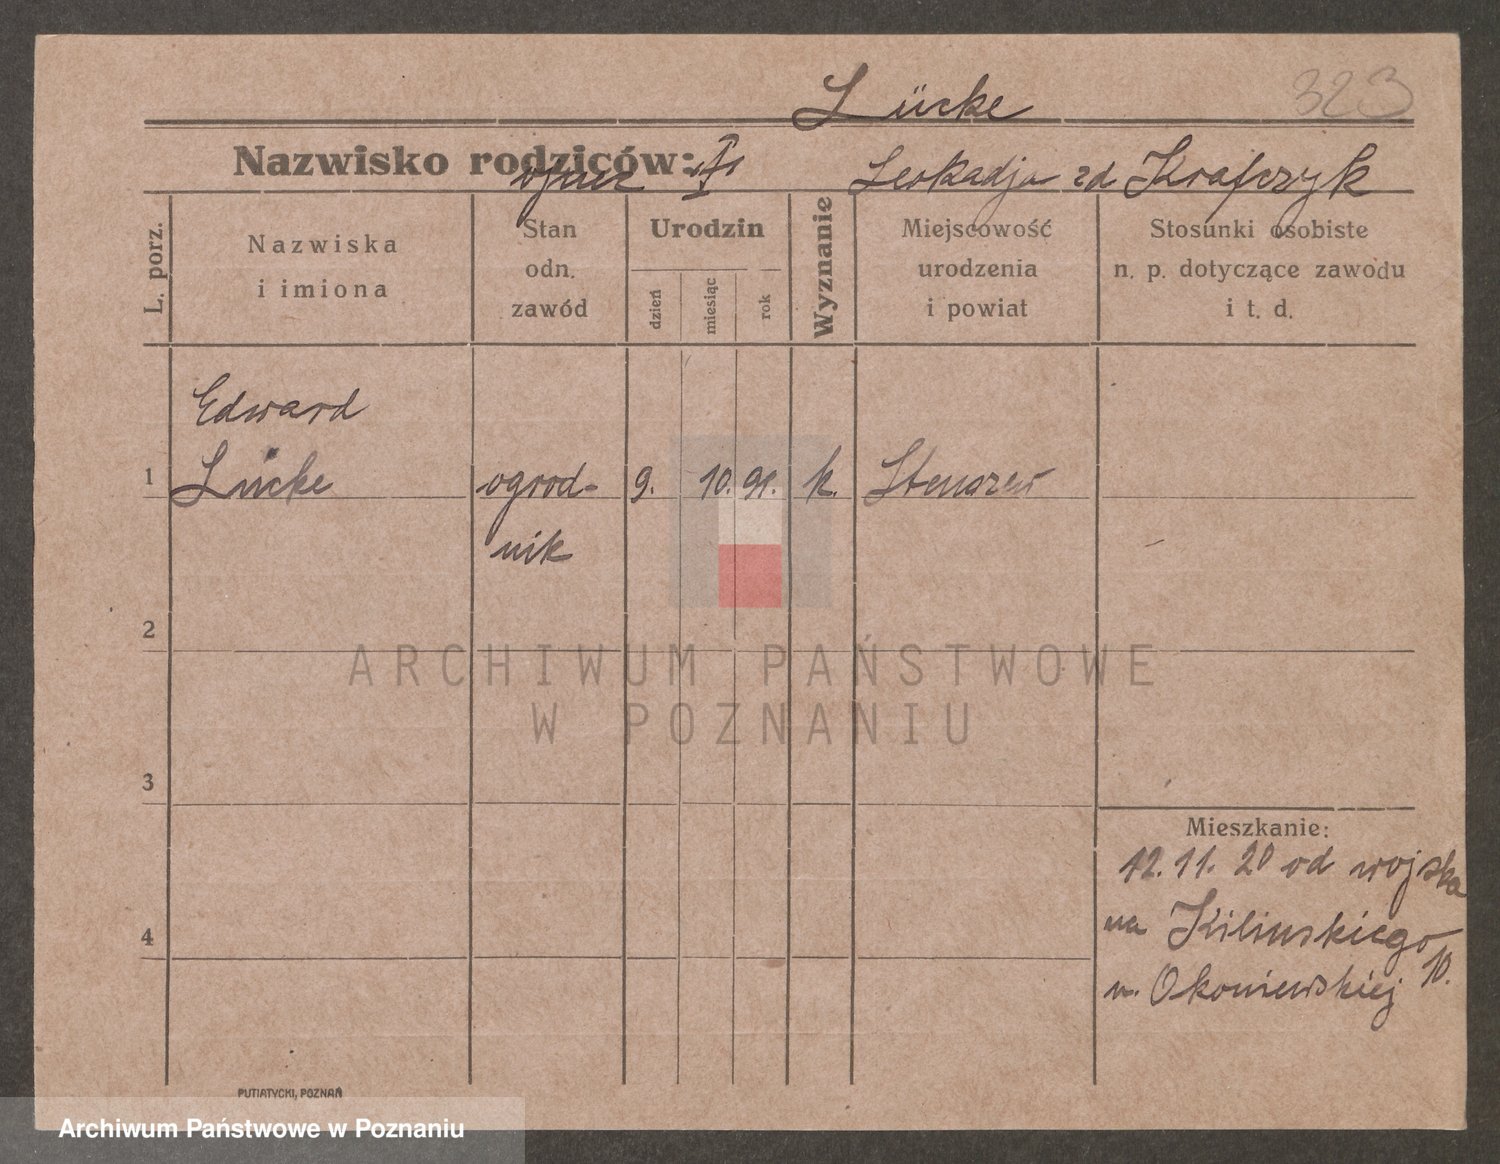 Lücke
323
Nazwisko rodziców:
Leokadja zd Krafczyk
L. porz.
Nazwiska
i imiona
Stan
odn.
zawód
Urodzin
dzień
miesiąc
rok
Wyznanie
Miejscowość
urodzenia
i powiat
Stosunki osobiste
n. p. dotyczące zawodu
i t. d.
Edward
1 Lücke ogrod- 9. 10. 91. k.
nik
2
3
4
Mieszkanie:
12.11. 20 od wojska
na Kilinskiego
10.
u. Okoniewskiej
PUTIATYCKI, POZNAŃ
ARCHIWUM PAŃSTWOWE
W POZNANIU
Archiwum Państwowe w Poznaniu